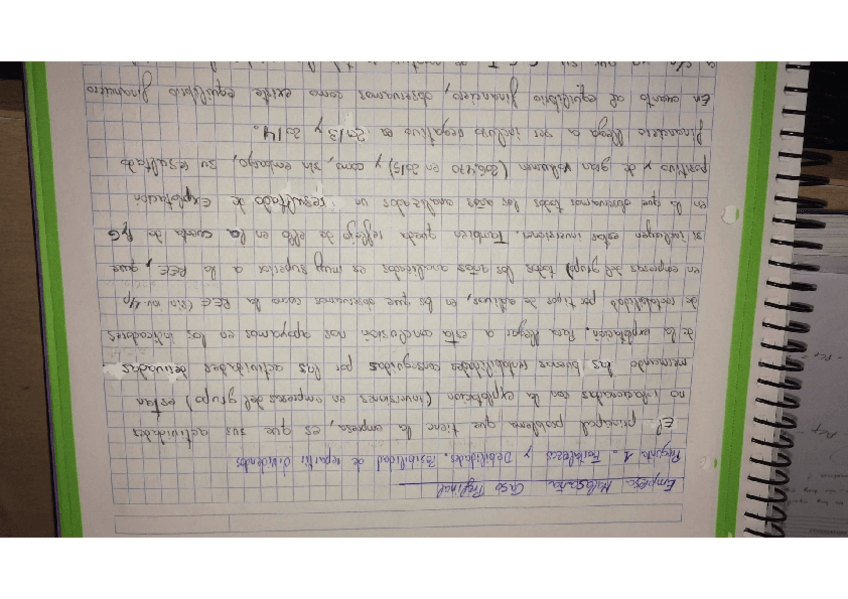 Empresa Caso Prefinal
Pregunta 1. Fortalezas y Debilidades. Posibilidad de repartir dividendos
El principal problema que tiene la empresa, es que sus actividades
no relacionadas con la explotación (inversiones en empresas del grupo) están
mermando las buenas rentabilidades conseguidas por las actividades derivadas
de la explotación. Para llegar a esta conclusión nos apoyamos en los indicadores
de rentabilidad por tipos de activos, en los que observamos como la REE (
en empresas del grupo) todos los años analizados es muy superior a la REE, que
si incluyen estas inversiones. También queda reflejo de ello en la cuenta de PyG
en la que observamos todos los años analizados un resultado de explotación
positivo y de gran volumen (206.470 en 2015) y como, sin embargo, su resultado
financiero llega a ser incluso negativo en 2013 y 2014.
En cuanto al equilibrio financiero, observamos como existe equilibrio financiero